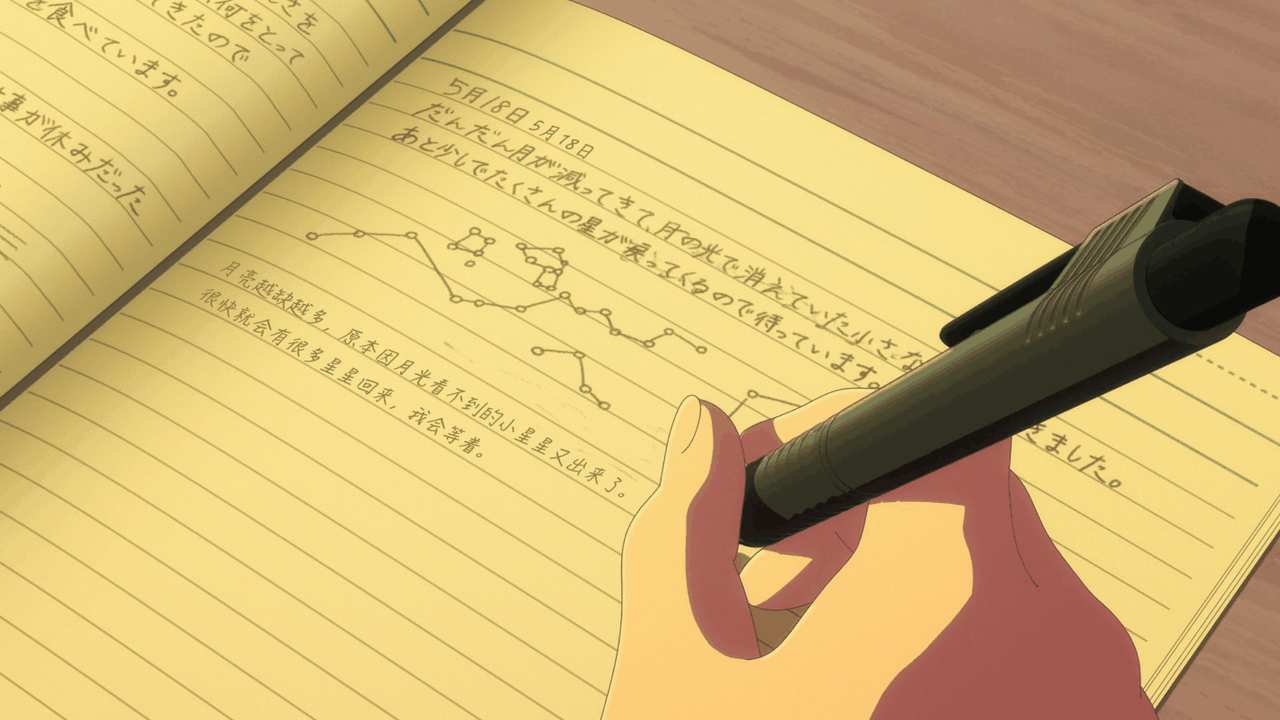 さを
何をとって
きたので
を食べています。
事が休みだった
5月18日 5月18日
だんだん月が減ってきて、月の光で消えていた小さな
あと少しでたくさんの星が戻ってくるので待っています。
きました。
月亮越缺越多，原本因月光看不到的小星星又出来了。
很快就会有很多星星回来，我会等着。